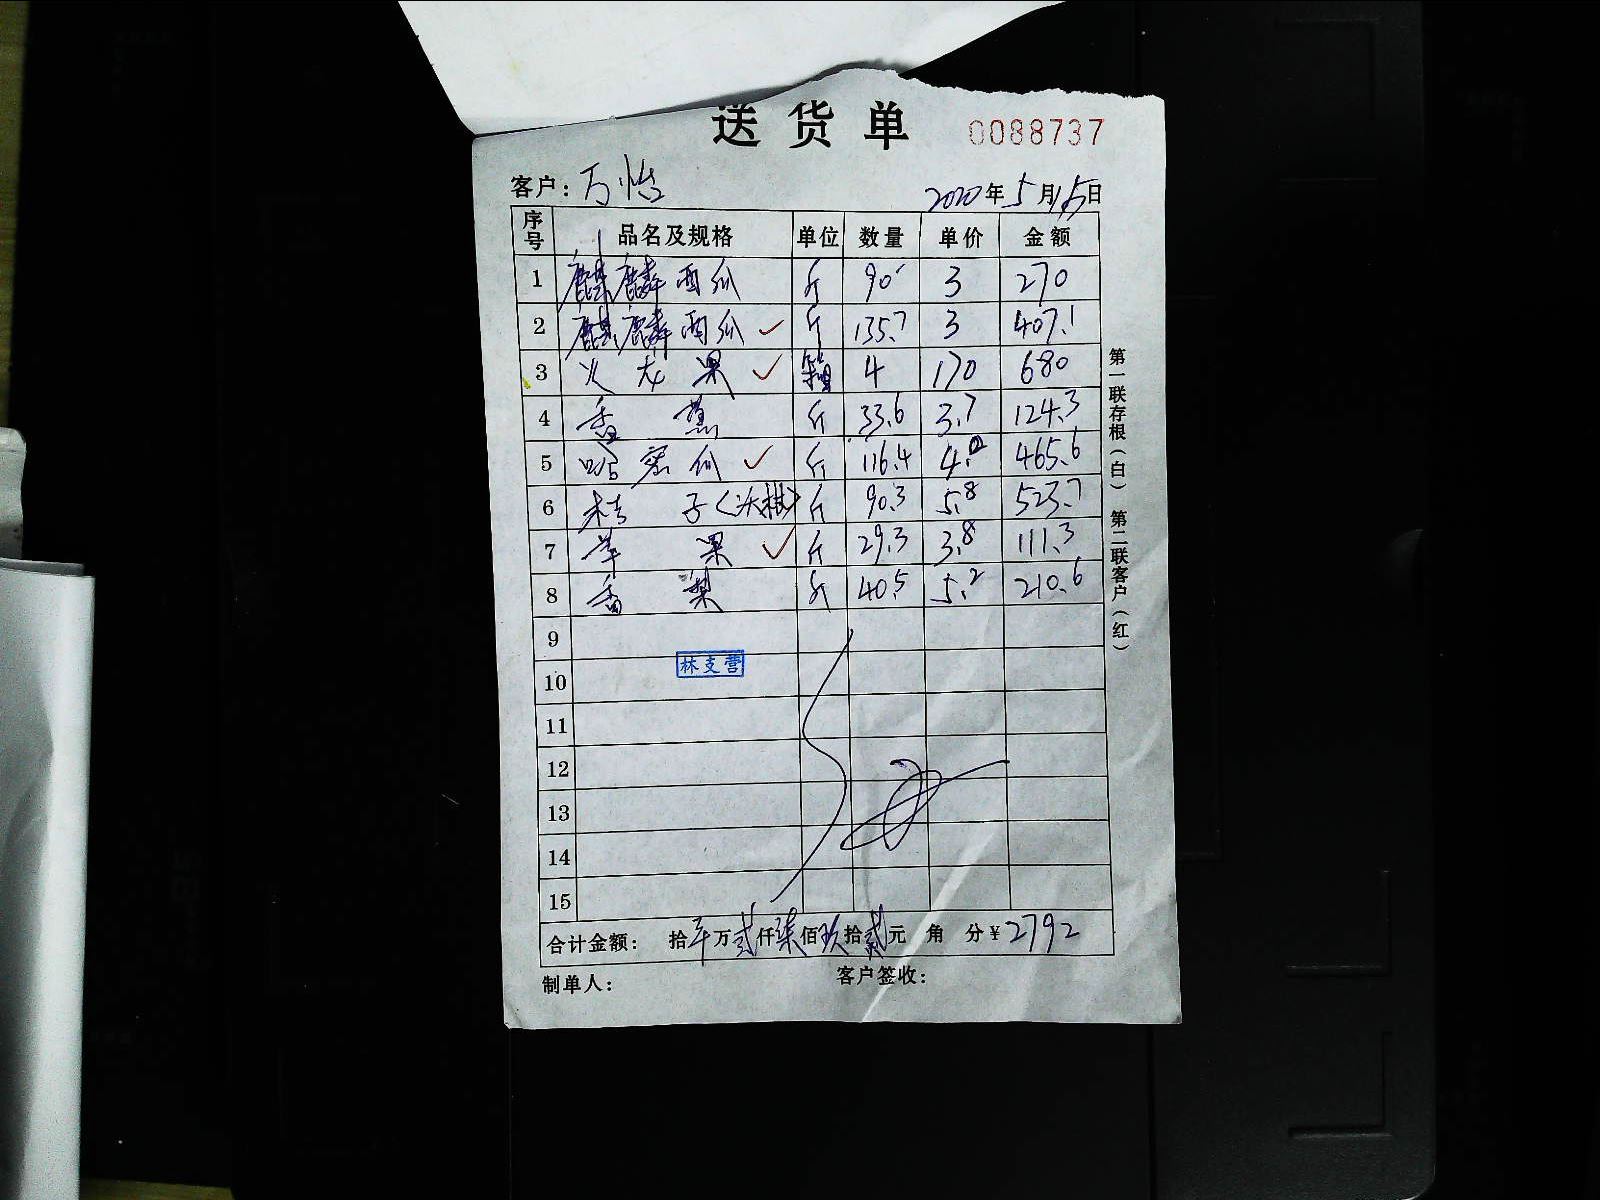 送货单 0088737
客户：万怡 2020年5月15日
序号 品名及规格 单位 数量 单价 金额
1 麒麟西瓜 斤 90 3 270
2 麒麟西瓜 ✓ 斤 135.7 3 407.1
3 火龙果 ✓ 箱 4 170 680
4 香蕉 斤 33.6 3.7 124.3
5 哈密瓜 ✓ 斤 116.4 4.0 465.6
6 桔子(沃柑) 斤 90.3 5.8 523.7
7 苹果 ✓ 斤 29.3 3.8 111.3
8 香梨 斤 40.5 5.2 210.6
9
10 林支营
11
12
13
14
15
合计金额： 拾 万贰仟柒佰玖拾贰元 角 分￥2792
制单人： 客户签收：
第一联存根(白) 第二联客户(红)